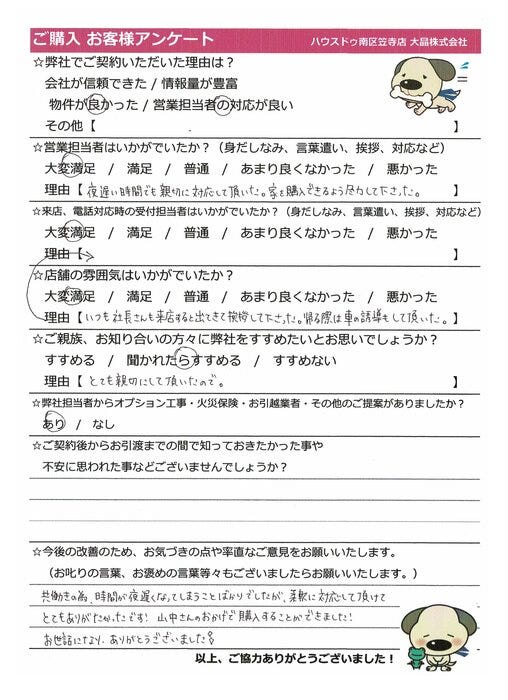 ご購入 お客様アンケート ハウスドゥ南区笠寺店 大晶株式会社
☆弊社でご契約いただいた理由は？
会社が信頼できた / 情報量が豊富
物件が良かった / 営業担当者の対応が良い
その他【 】
☆営業担当者はいかがでいたか？（身だしなみ、言葉遣い、挨拶、対応など）
大変満足 / 満足 / 普通 / あまり良くなかった / 悪かった
理由【 夜遅い時間でも親切に対応して頂いた。家を購入できるよう尽力して下さった。 】
☆来店、電話対応時の受付担当者はいかがでいたか？（身だしなみ、言葉遣い、挨拶、対応など）
大変満足 / 満足 / 普通 / あまり良くなかった / 悪かった
理由【 】
☆店舗の雰囲気はいかがでいたか？
大変満足 / 満足 / 普通 / あまり良くなかった / 悪かった
理由【 いつも社長さんも来店すると出てきて挨拶して下さった。帰る際は車の誘導もして頂いた。 】
☆ご親族、お知り合いの方々に弊社をすすめたいとお思いでしょうか？
すすめる / 聞かれたらすすめる / すすめない
理由【 とても親切にして頂いたので。 】
☆弊社担当者からオプション工事・火災保険・お引越業者・その他のご提案がありましたか？
あり / なし
☆ご契約後からお引渡までの間で知っておきたかった事や
不安に思われた事などございませんでしょうか？
☆今後の改善のため、お気づきの点や率直なご意見をお願いいたします。
（お叱りの言葉、お褒めの言葉等々もございましたらお願いいたします。）
共働きの為、時間が夜遅くなってしまうことばかりでしたが、柔軟に対応して頂けて
とてもありがたかったです！山中さんのおかげで購入することができました！
お世話になり、ありがとうございました
以上、ご協力ありがとうございました！